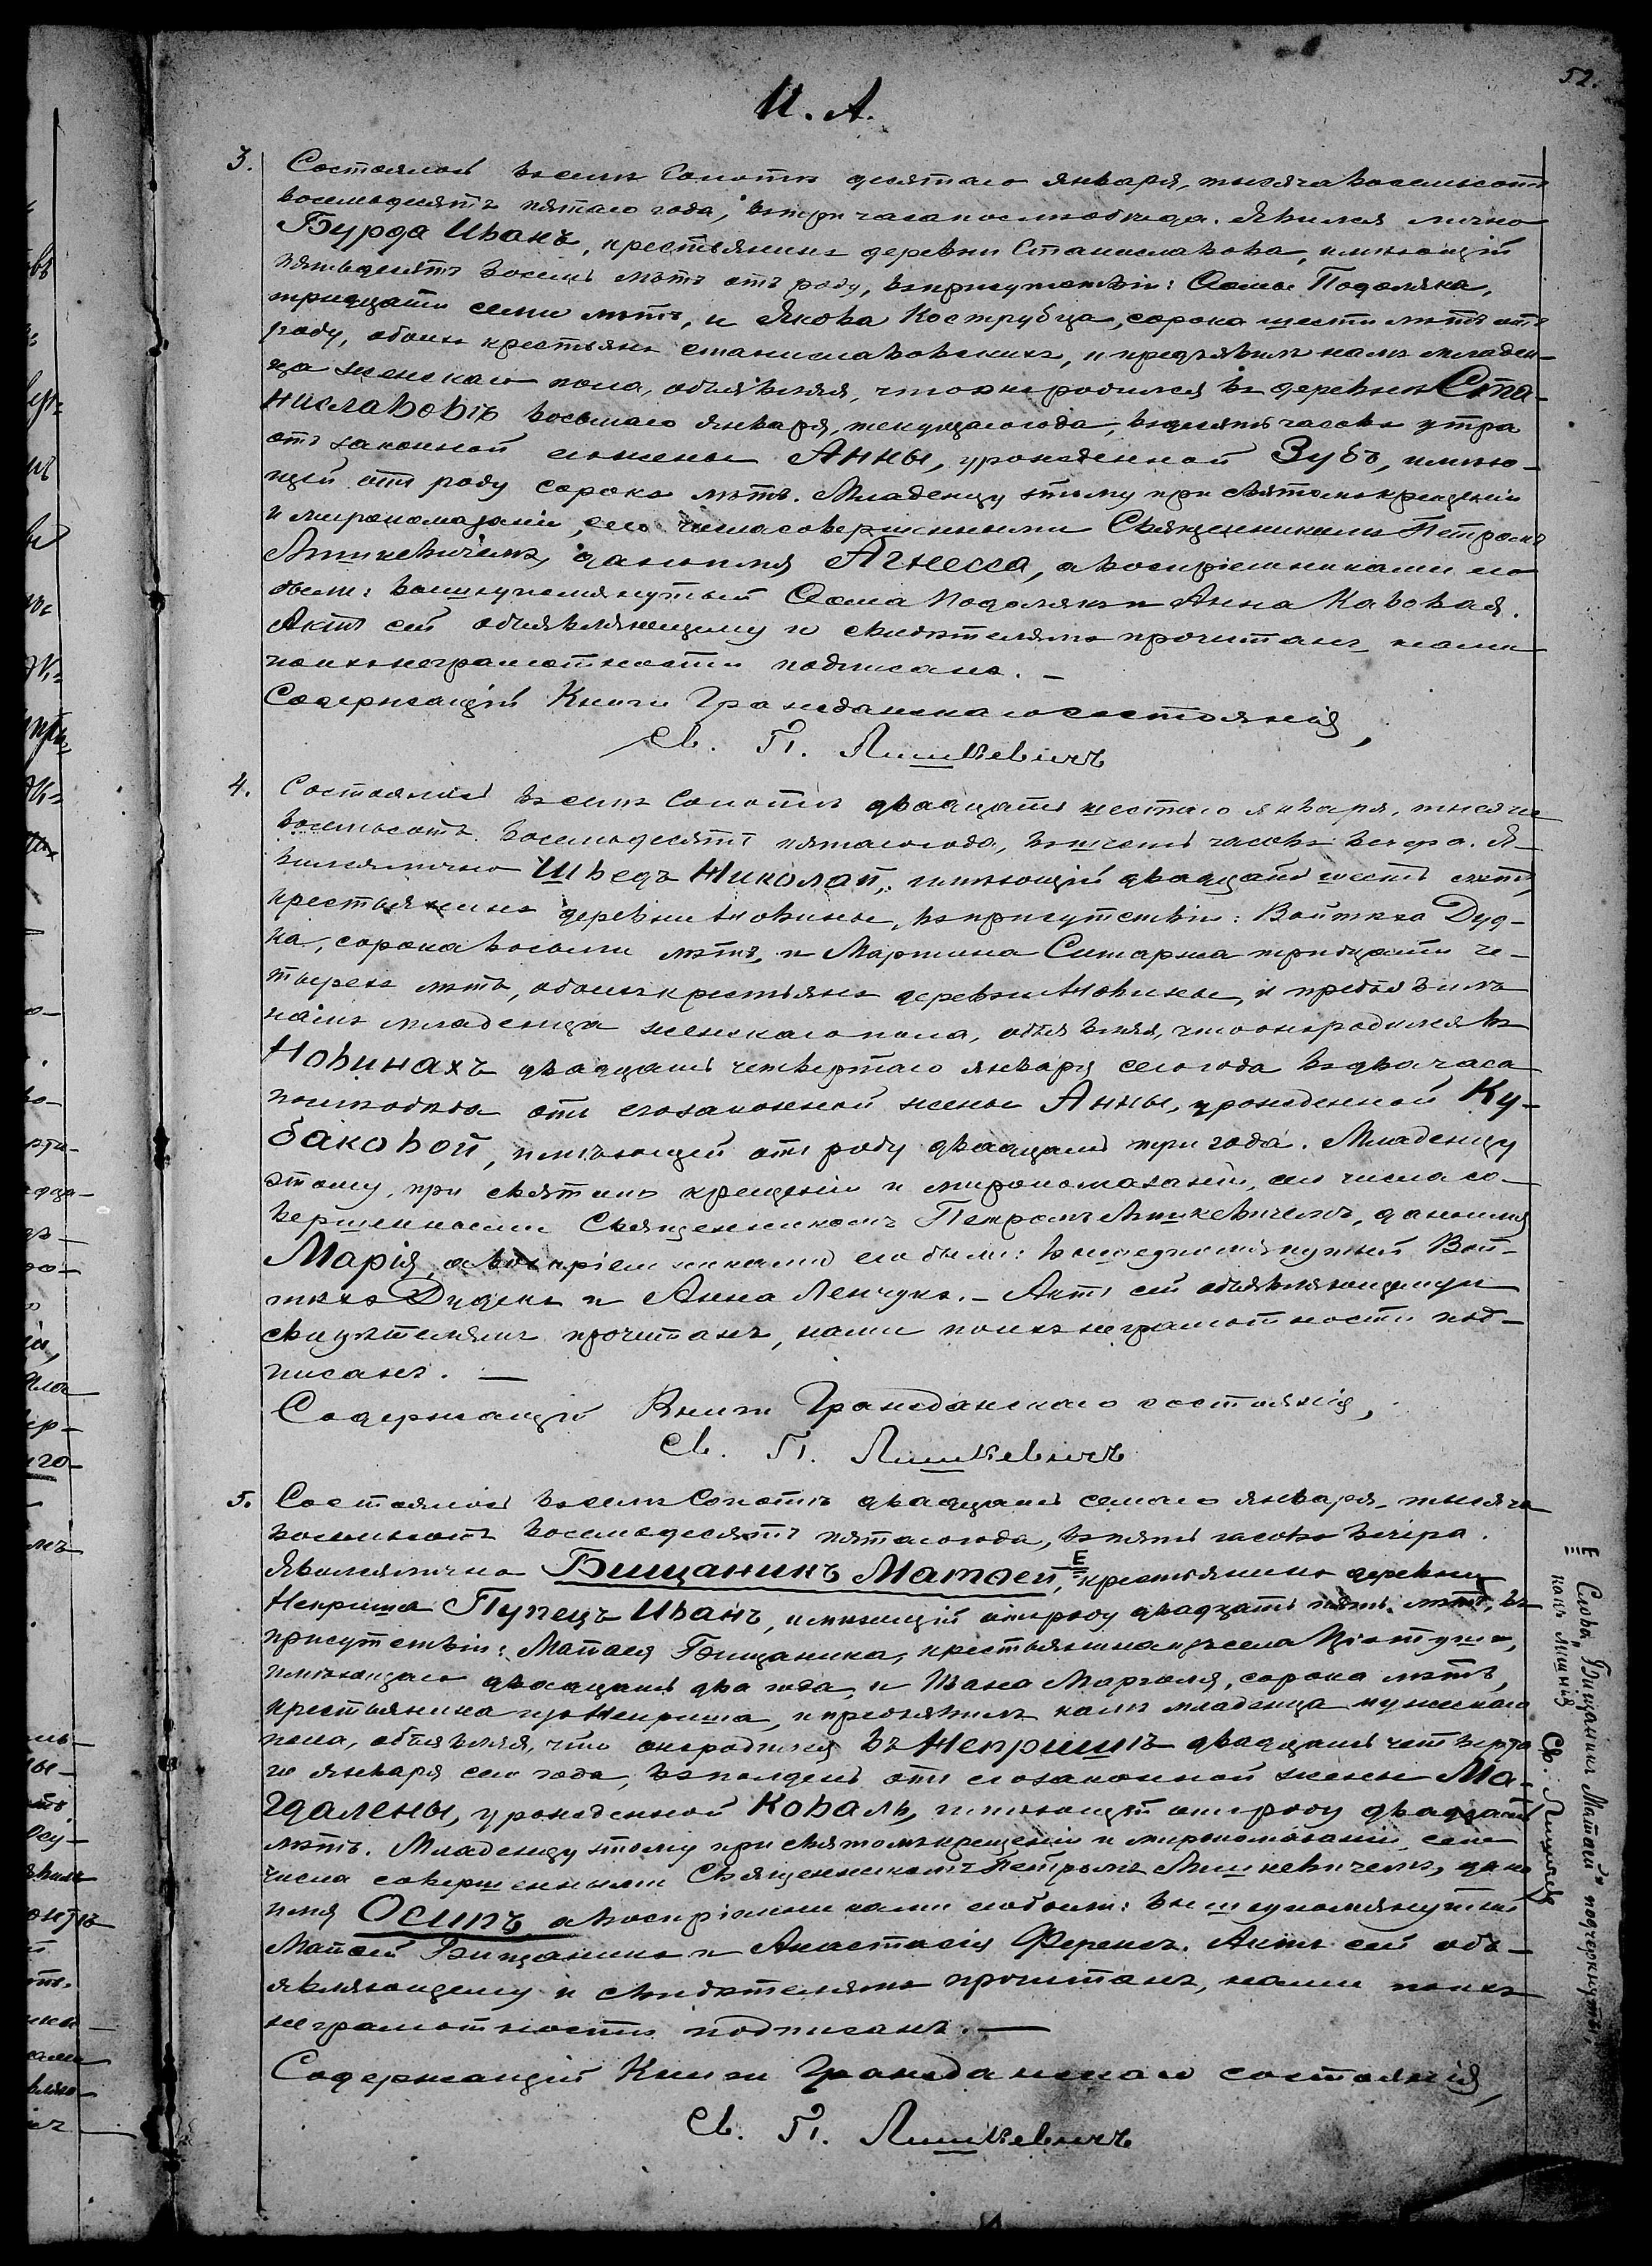 52.
И. А.
3. Состоялось въ селѣ Сопотѣ десятаго января, тысяча восемьсотъ
восемьдесятъ пятаго года, въ три часа пополюобѣда. Явился лично
Бурда Иванъ, крестьянинъ деревни Станиславова, имѣющій
пятьдесятъ восемь лѣтъ отъ роду, въ присутствіи: Ѳомы Подоляка,
тридцати семи лѣтъ, и Якова Кострубца, сорока шести лѣтъ отъ
роду, обоихъ крестьянъ станиславовскихъ, и предъявилъ намъ младен-
ца женскаго пола, объявляя, что онъ родился въ деревнѣ Ста-
ниславовѣ восьмаго января, текущаго года, въ десять часовъ утра
отъ законной его жены Анны, урожденной Зубъ, имѣю-
щей отъ роду сорокъ лѣтъ. Младенцу этому при святомъ крещеніи
и миропомазаніи, сего числа совершенными Священникомъ Петромъ
Лишкевичемъ, дано имя Агнесса, а воспріемниками его
были: вышеупомянутый Ѳома Подолякъ и Анна Кавовая.
Актъ сей объявляющему и свидѣтелямъ прочитанъ, нами
по ихъ неграмотности подписанъ. –
Содержащій Книги Гражданскаго состоянія,
Св. П. Лишкевичъ
4. Состоялось въ селѣ Сопотѣ двадцать шестаго января, тысяча
восемьсотъ восемьдесятъ пятаго года, въ шесть часовъ вечера. Я-
вился лично Шведъ Николай, имѣющій двадцать шесть лѣтъ,
крестьянинъ деревни Новины, въ присутствіи: Войтка Дуд-
ка, сорока восьми лѣтъ, и Мартина Ситарка тридцати че-
тырехъ лѣтъ, обоихъ крестьянъ деревни Новины, и предъявилъ
намъ младенца женскаго пола, объявляя, что онъ родился въ
Новинахъ двадцать четвертаго января сего года въ два часа
пополюобѣда отъ его законной жены Анны, урожденной Ку-
баковой, имѣющей отъ роду двадцать три года. Младенцу
этому, при святомъ крещеніи и миропомазаніи, сего числа со-
вершенными Священникомъ Петромъ Лишкевичемъ, дано имя
Марія, а воспріемниками его были: вышеупомянутый Вой-
тко Дудекъ и Анна Ленчукъ. – Актъ сей объявляющему и
свидѣтелямъ прочитанъ, нами по ихъ неграмотности под-
писанъ. –
Содержащій Книги Гражданскаго состоянія,
Св. П. Лишкевичъ
5. Состоялось въ селѣ Сопотѣ двадцать седьмаго января, тысяча
восемьсотъ восемьдесятъ пятаго года, въ пять часовъ вечера.
Явился лично Бищанинъ Матѳей, крестьянинъ деревни
Неприша Пупецъ Иванъ, имѣющій отъ роду двадцать пять лѣтъ, въ
присутствіи: Матѳея Бищанина, крестьянина изъ села
имѣющаго двадцать два года, и Ивана Марголя, сорока лѣтъ,
крестьянина изъ Неприша, и предъявилъ намъ младенца мужескаго
пола, объявляя, что онъ родился въ Непришѣ двадцать четверта-
го января сего года, въ полдень отъ его законной жены Ма-
гдалены, урожденной Коваль, имѣющей отъ роду двадцать
лѣтъ. Младенцу этому при святомъ крещеніи и миропомазаніи, сего
числа совершенными Священникомъ Петромъ Лишкевичемъ, дано
имя Осипъ, а воспріемниками его были: вышеупомянутый
Матѳей Бищанинъ и Анастасія Ференсъ. Актъ сей объ-
являющему и свидѣтелямъ прочитанъ, нами по ихъ
неграмотности подписанъ. –
Содержащій Книги Гражданскаго состоянія,
Св. П. Лишкевичъ
Слова „Бищанинъ Матѳей" подчеркнуты,
какъ лишнія Св. Лишкевичъ